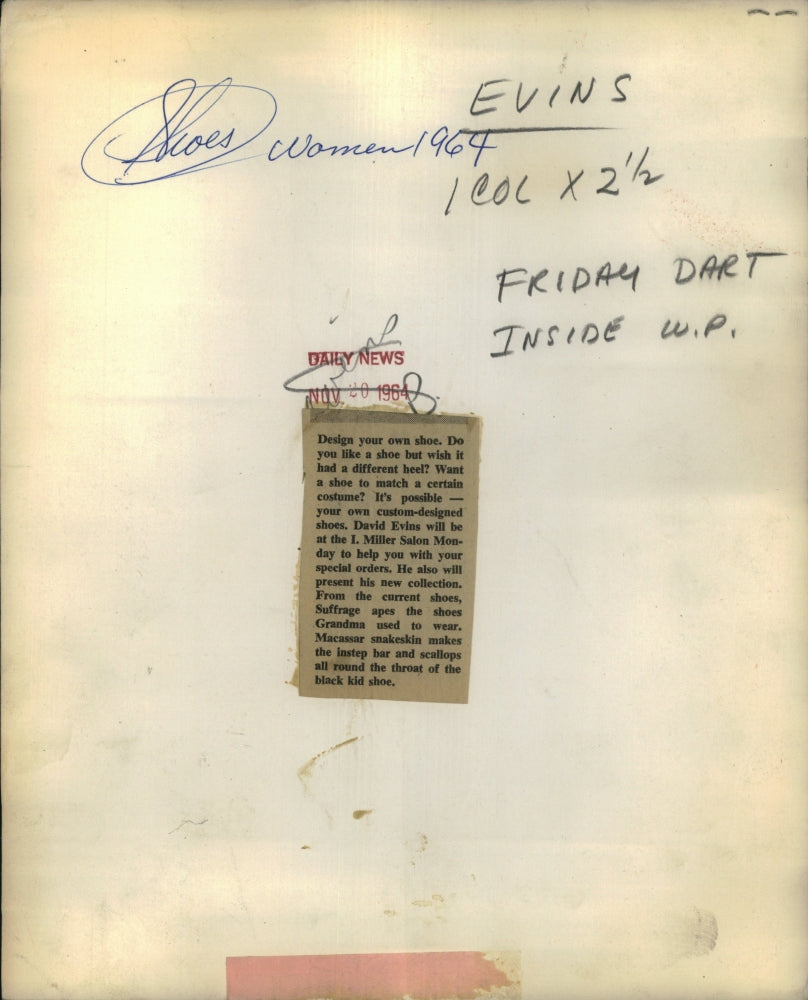 EVINS
Shoes women 1964
1 COL X 2 1/2
FRIDAY DART
INSIDE W.P.
DAILY NEWS
NOV 20 1964
Design your own shoe. Do
you like a shoe but wish it
had a different heel? Want
a shoe to match a certain
costume? It's possible —
your own custom-designed
shoes. David Evins will be
at the I. Miller Salon Mon-
day to help you with your
special orders. He also will
present his new collection.
From the current shoes,
Suffrage apes the shoes
Grandma used to wear.
Macassar snakeskin makes
the instep bar and scallops
all round the throat of the
black kid shoe.